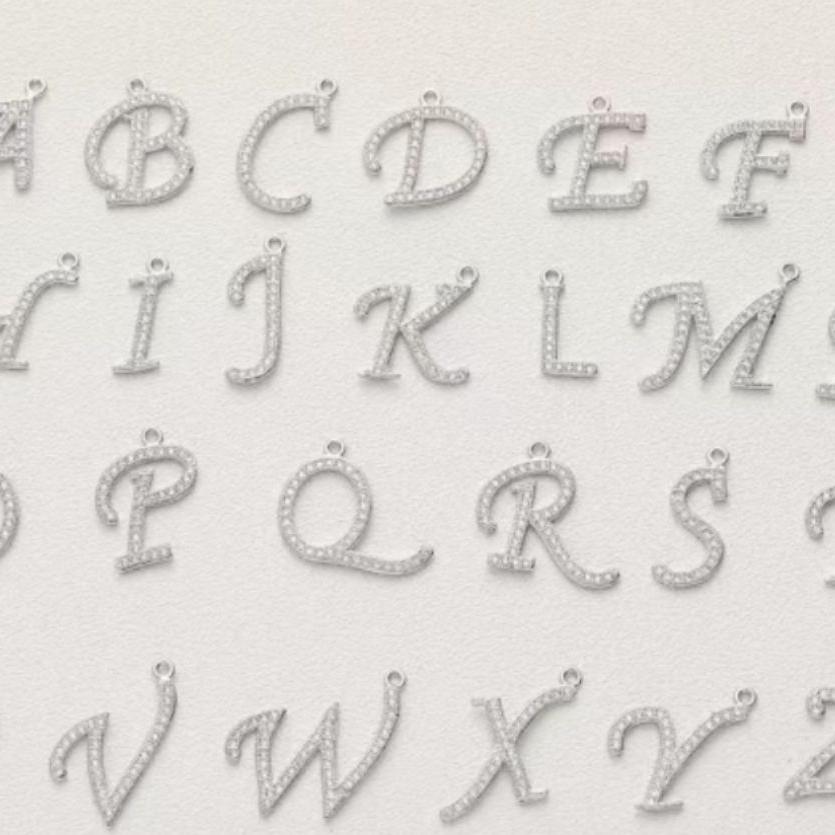 A B C D E F
H I J K L M
P Q R S
V W X Y Z